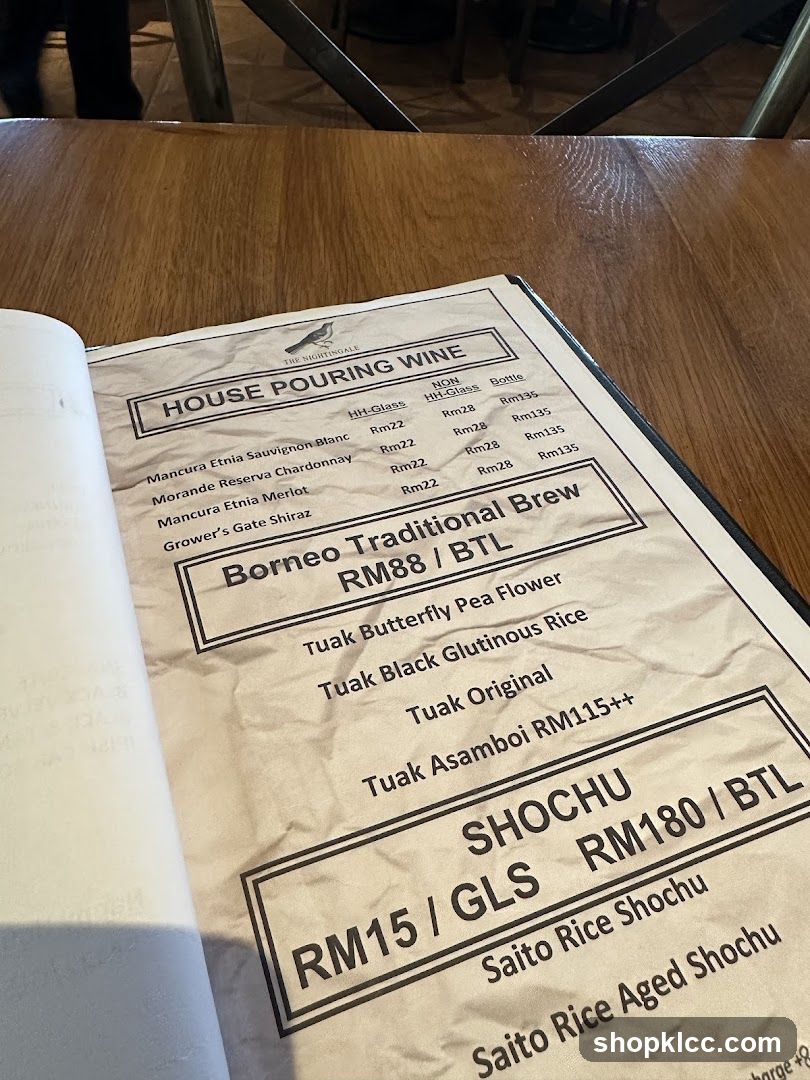 THE NIGHTINGALE
HOUSE POURING WINE
HH-Glass NON HH-Glass Bottle
Mancura Etnia Sauvignon Blanc Rm22 Rm28 Rm135
Morande Reserva Chardonnay Rm22 Rm28 Rm135
Mancura Etnia Merlot Rm22 Rm28 Rm135
Grower's Gate Shiraz Rm22 Rm28 Rm135
Borneo Traditional Brew
RM88 / BTL
Tuak Butterfly Pea Flower
Tuak Black Glutinous Rice
Tuak Original
Tuak Asamboi RM115++
SHOCHU
RM15 / GLS RM180 / BTL
Saito Rice Shochu
Saito Rice Aged Shochu
shopklcc.com